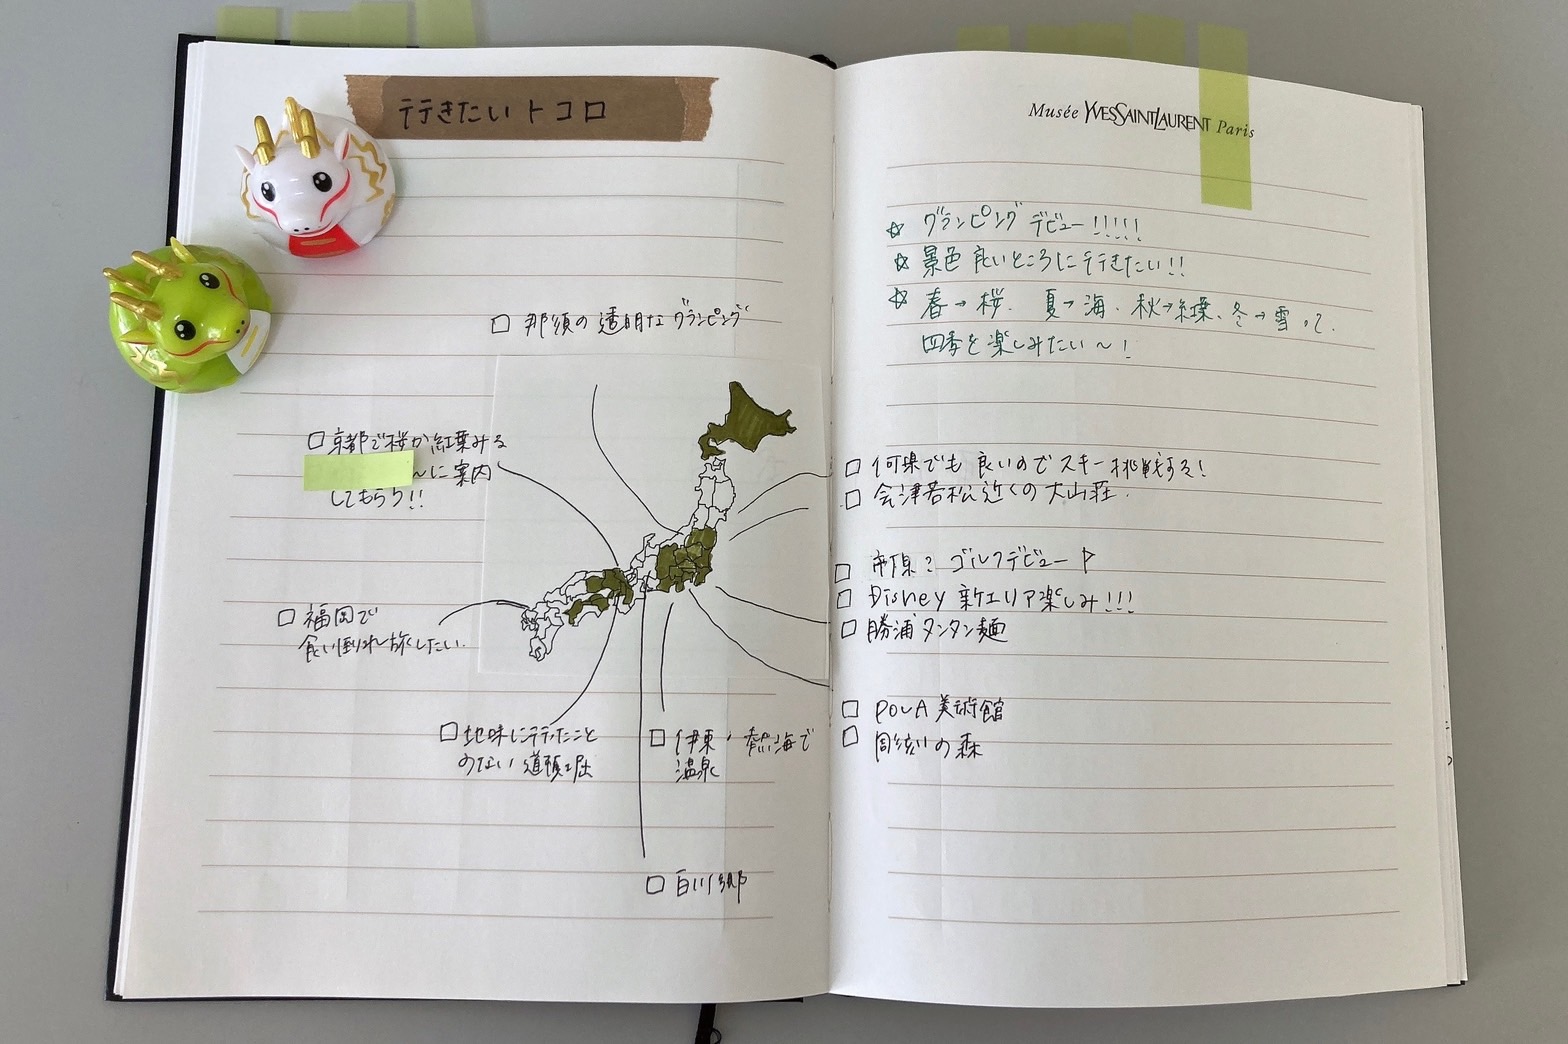 行きたいトコロ
□ 那須の透明なグランピング
□ 京都で桜か紅葉みる
んに案内
してもらう!!
□ 福岡で
食い倒れ旅したい.
□ 地味に行ったこと
のない道頓堀
□ 伊東・熱海で
温泉
□ 白川郷
Musée YVESSAINTLAURENT Paris
☆ グランピングデビュー!!!!!
☆ 景色良いところに行きたい!!
☆ 春→桜、夏→海、秋→紅葉、冬→雪って、
四季を楽しみたい〜!
□ 何県でも良いのでスキー挑戦する!
□ 会津若松近くの大山荘.
□ 県? ゴルフデビュー
□ Disney 新エリア楽しみ!!!
□ 勝浦タンタン麺
□ POLA美術館
□ 彫刻の森